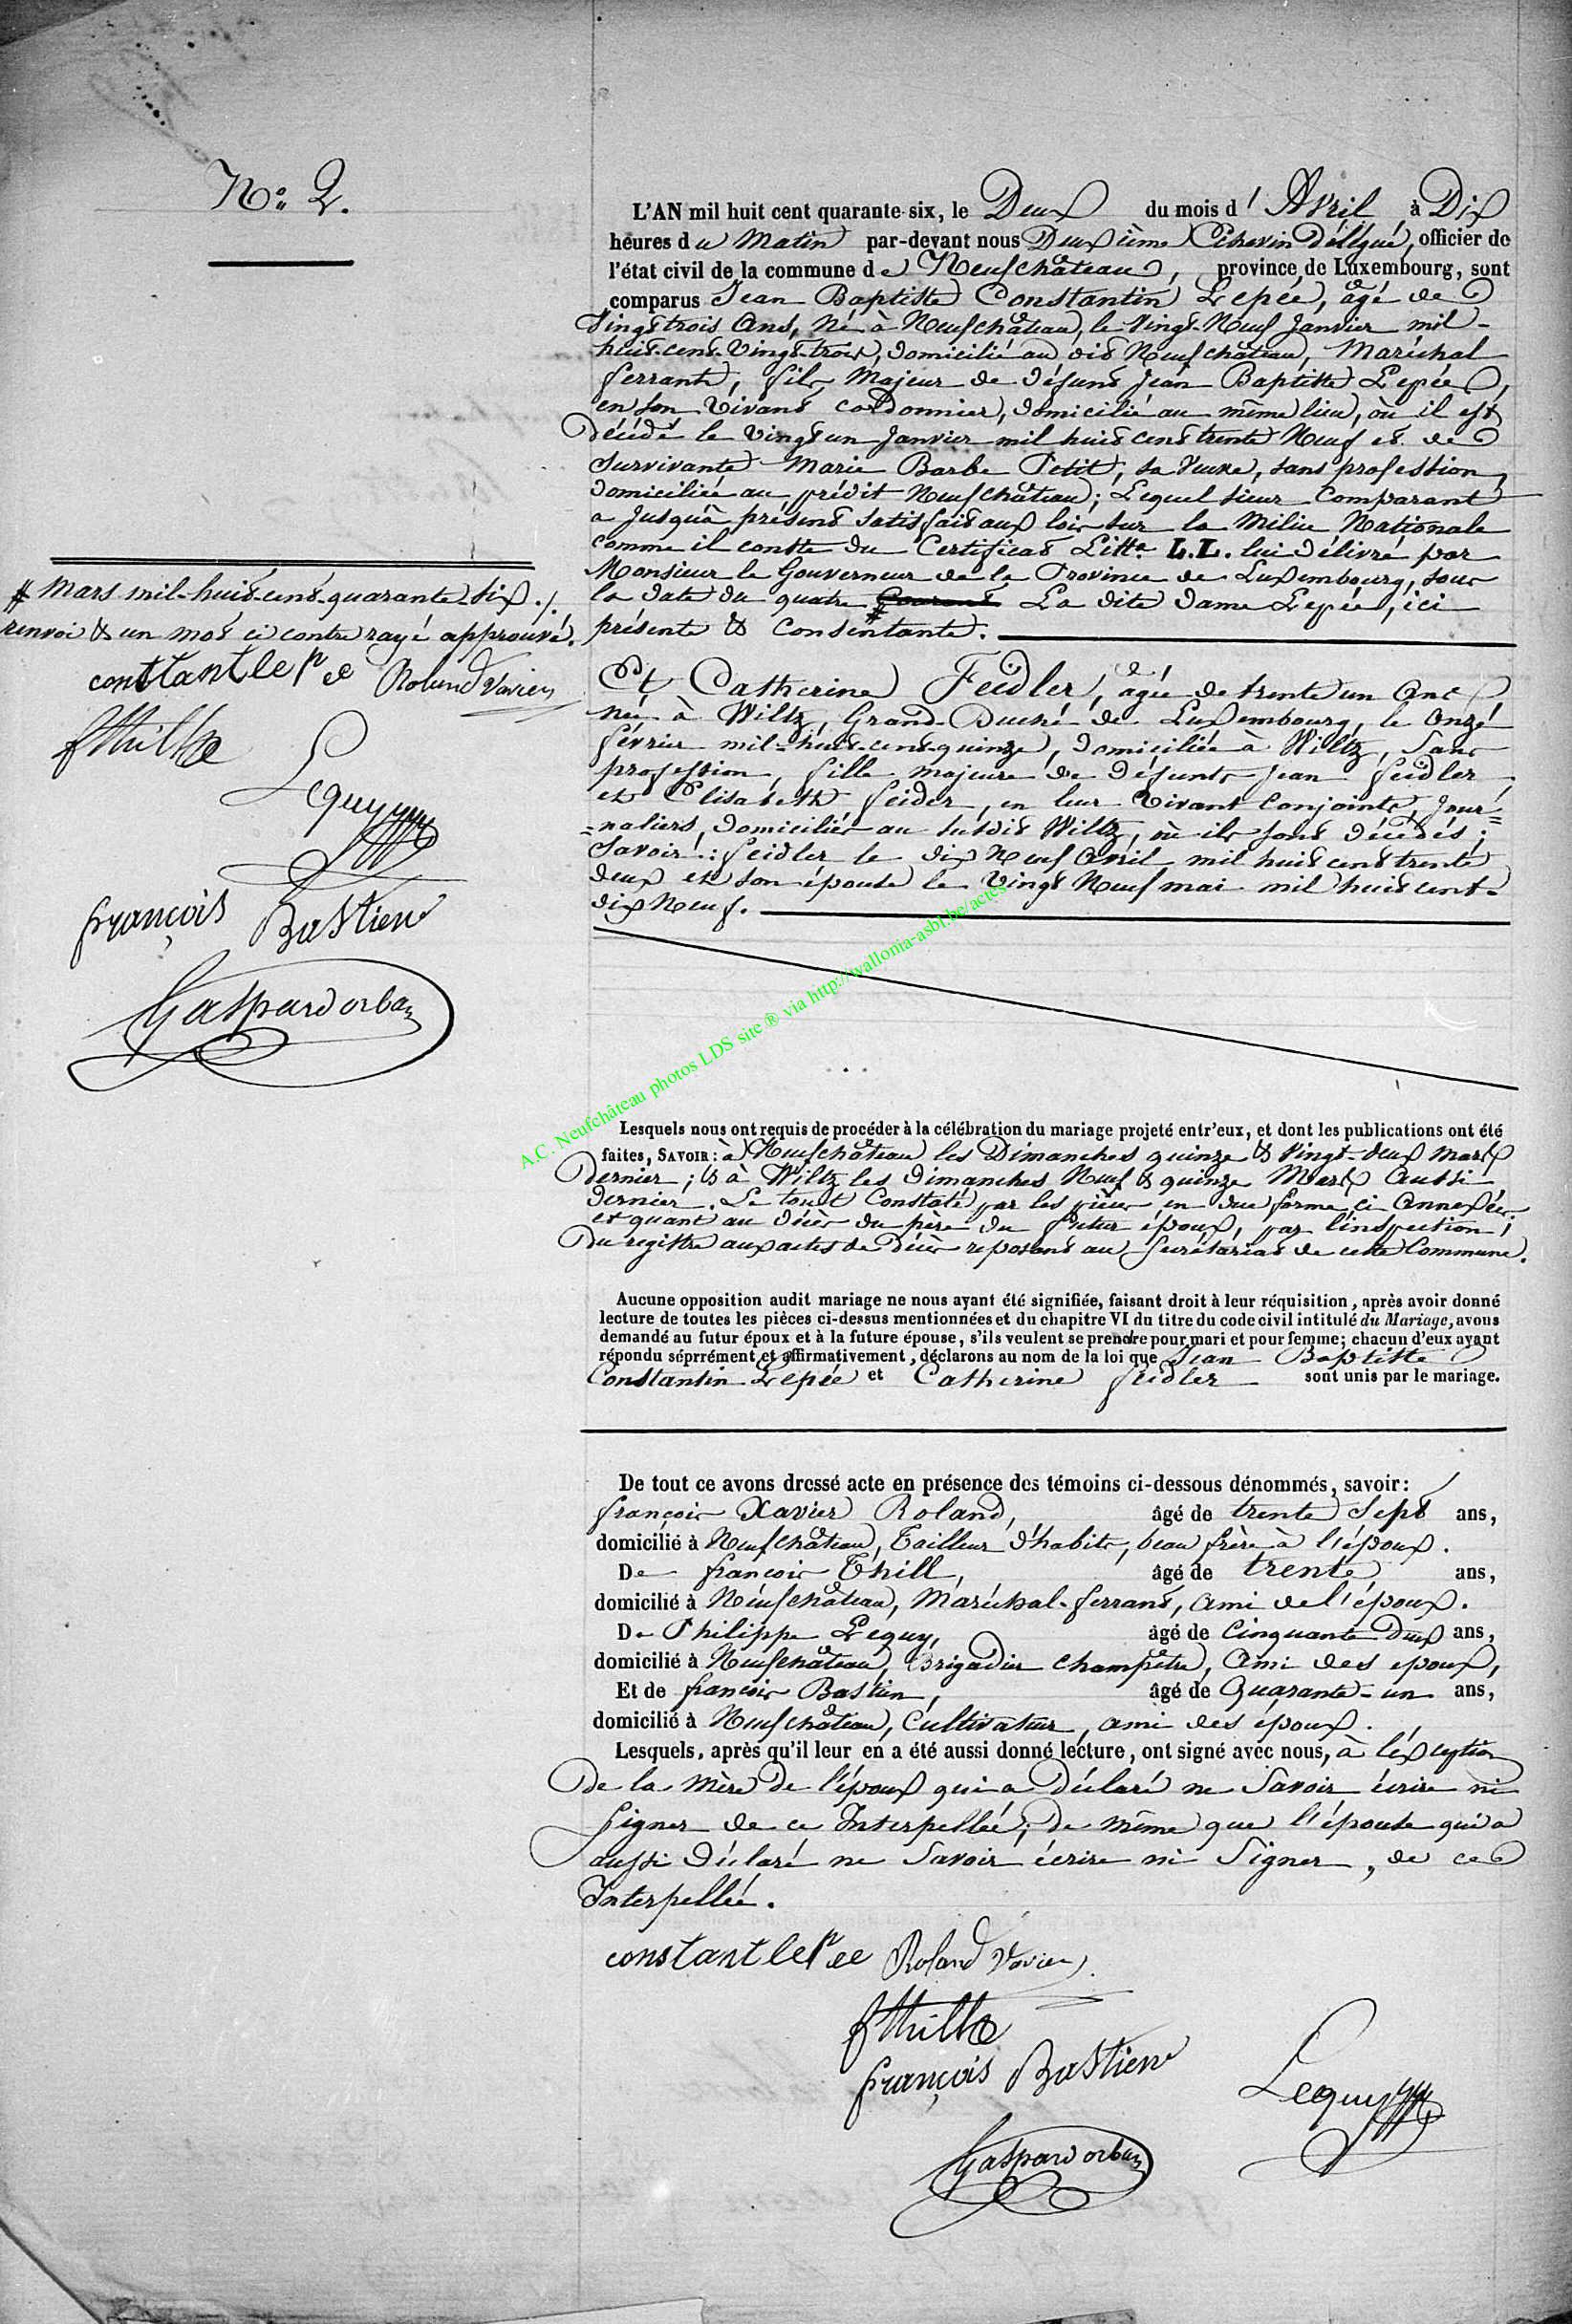 N.º 2.
L'AN mil huit cent quarante-six, le Deux du mois d'Avril, à Dix
heures du Matin par-devant nous Deuxième Echevin Délégué, officier de
l'état civil de la commune de Neufchâteau, province de Luxembourg, sont
comparus Jean Baptiste Constantin Lepée, âgé de
vingt trois Ans, né à Neufchâteau, le vingt-Neuf Janvier mil-
huit-cent-vingt-trois, domicilié au dit Neufchâteau, Maréchal
ferrant, fils Majeur de défunt Jean Baptiste Lepée,
en son vivant cordonnier, domicilié au même lieu, où il est
Décédé le vingt un Janvier mil huit cent trente Neuf et de
survivante Marie Barbe Petit, sa veuve, sans profession,
domiciliée au prédit Neufchâteau; Lequel sieur Comparant
a jusqu'à présent satisfait aux lois sur la Milice Nationale
comme il conste du Certificat Litt.ª L.L. lui délivré par
Monsieur le Gouverneur de la Province de Luxembourg, sous
la date du quatre courant # La dite dame Lepée, ici
présente & consentante.
# Mars mil-huit-cent-quarante-six ./.
renvoi & un mot ci contre rayé approuvé.
constant lepée Roland Xavier
fthill
Lequy
françois Bastien
Gaspard orban
Et Catherine Feidler, âgée de trente un Ans,
née à Wiltz, Grand-Duché de Luxembourg, le onze
février mil-huit-cent-quinze, domiciliée à Wiltz, Sans
profession, fille majeure de défunts Jean feidler
et Elisabeth feider, en leur vivant conjoints, Jour-
=naliers, domiciliés au susdit Wiltz, où ils sont décédés;
Savoir: feidler le dix Neuf Avril mil huit cent trente
deux et son épouse le vingt Neuf mai mil huit cent-
dix Neuf.
A.C. Neufchâteau photos LDS site ® via http://wallonia-asbl.be/actes
Lesquels nous ont requis de procéder à la célébration du mariage projeté entr'eux, et dont les publications ont été
faites, SAVOIR: à Neufchâteau les Dimanches quinze & vingt-deux Mars
dernier; & à Wiltz les dimanches Neuf & quinze Mars Aussi
dernier. Le tout Constaté par les pièces en due forme ci Annexées
et quant au décès du père du futur époux, par l'inspection
du registre aux actes de Décès reposant au Secrétariat de cette Commune.
Aucune opposition audit mariage ne nous ayant été signifiée, faisant droit à leur réquisition, après avoir donné
lecture de toutes les pièces ci-dessus mentionnées et du chapitre VI du titre du code civil intitulé du Mariage, avons
demandé au futur époux et à la future épouse, s'ils veulent se prendre pour mari et pour femme; chacun d'eux ayant
répondu séprrément et affirmativement, déclarons au nom de la loi que Jean Baptiste
Constantin Lepée et Catherine feidler sont unis par le mariage.
De tout ce avons dressé acte en présence des témoins ci-dessous dénommés, savoir:
françois Xavier Roland, âgé de trente sept ans,
domicilié à Neufchâteau, Tailleur d'habits, beau frère à l'époux.
De françois Thill, âgé de trente ans,
domicilié à Neufchâteau, Maréchal-ferrant, ami de l'époux.
De Philippe Lequy, âgé de Cinquante Deux ans,
domicilié à Neufchâteau, Brigadier champêtre, Ami des époux,
Et de françois Bastien, âgé de Quarante-un ans,
domicilié à Neufchâteau, Cultivateur, ami des époux.
Lesquels, après qu'il leur en a été aussi donné lecture, ont signé avec nous, à l'exception
De la mère de l'époux qui a déclaré ne Savoir écrire ni
signer de ce Interpellée; de même que l'épouse qui a
aussi déclaré ne Savoir écrire ni Signer, de ce
Interpellée.
constant lepée Roland Xavier
fthill
françois Bastien Lequy
Gaspard orban